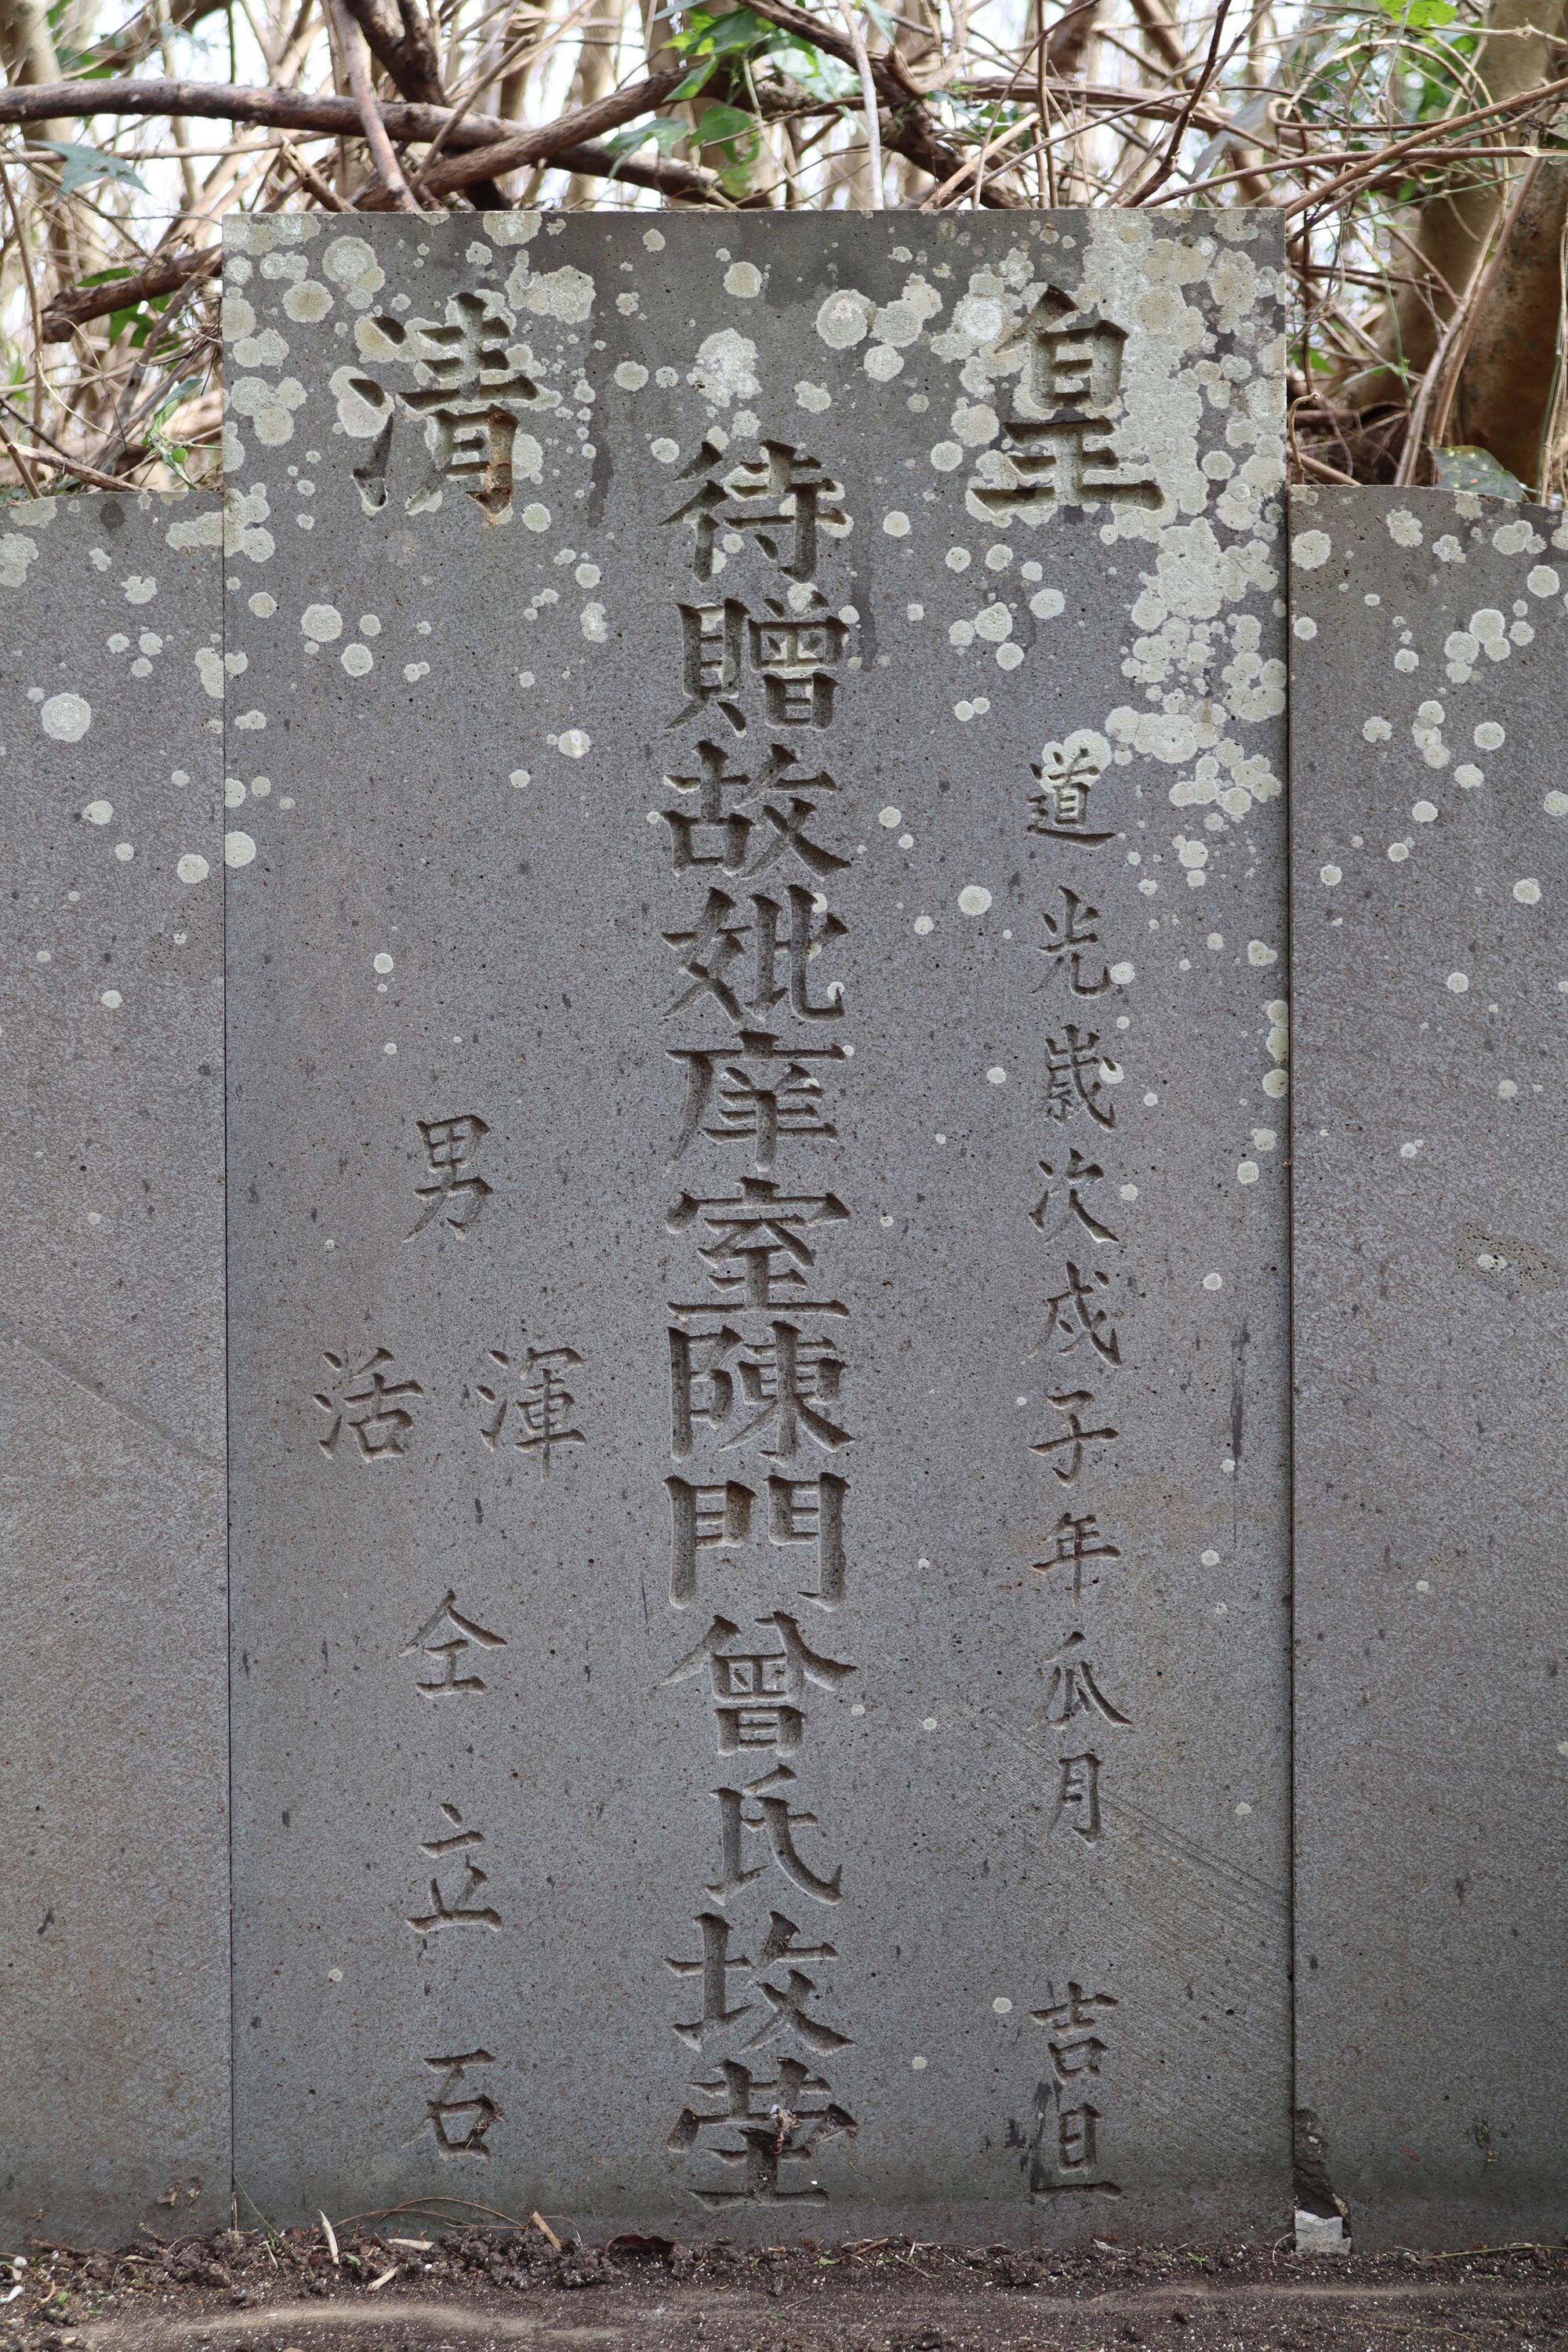 皇清
道光歲次戊子年瓜月 吉旦
待贈故妣庠室陳門曾氏坆茔
男
渾
活
仝立石